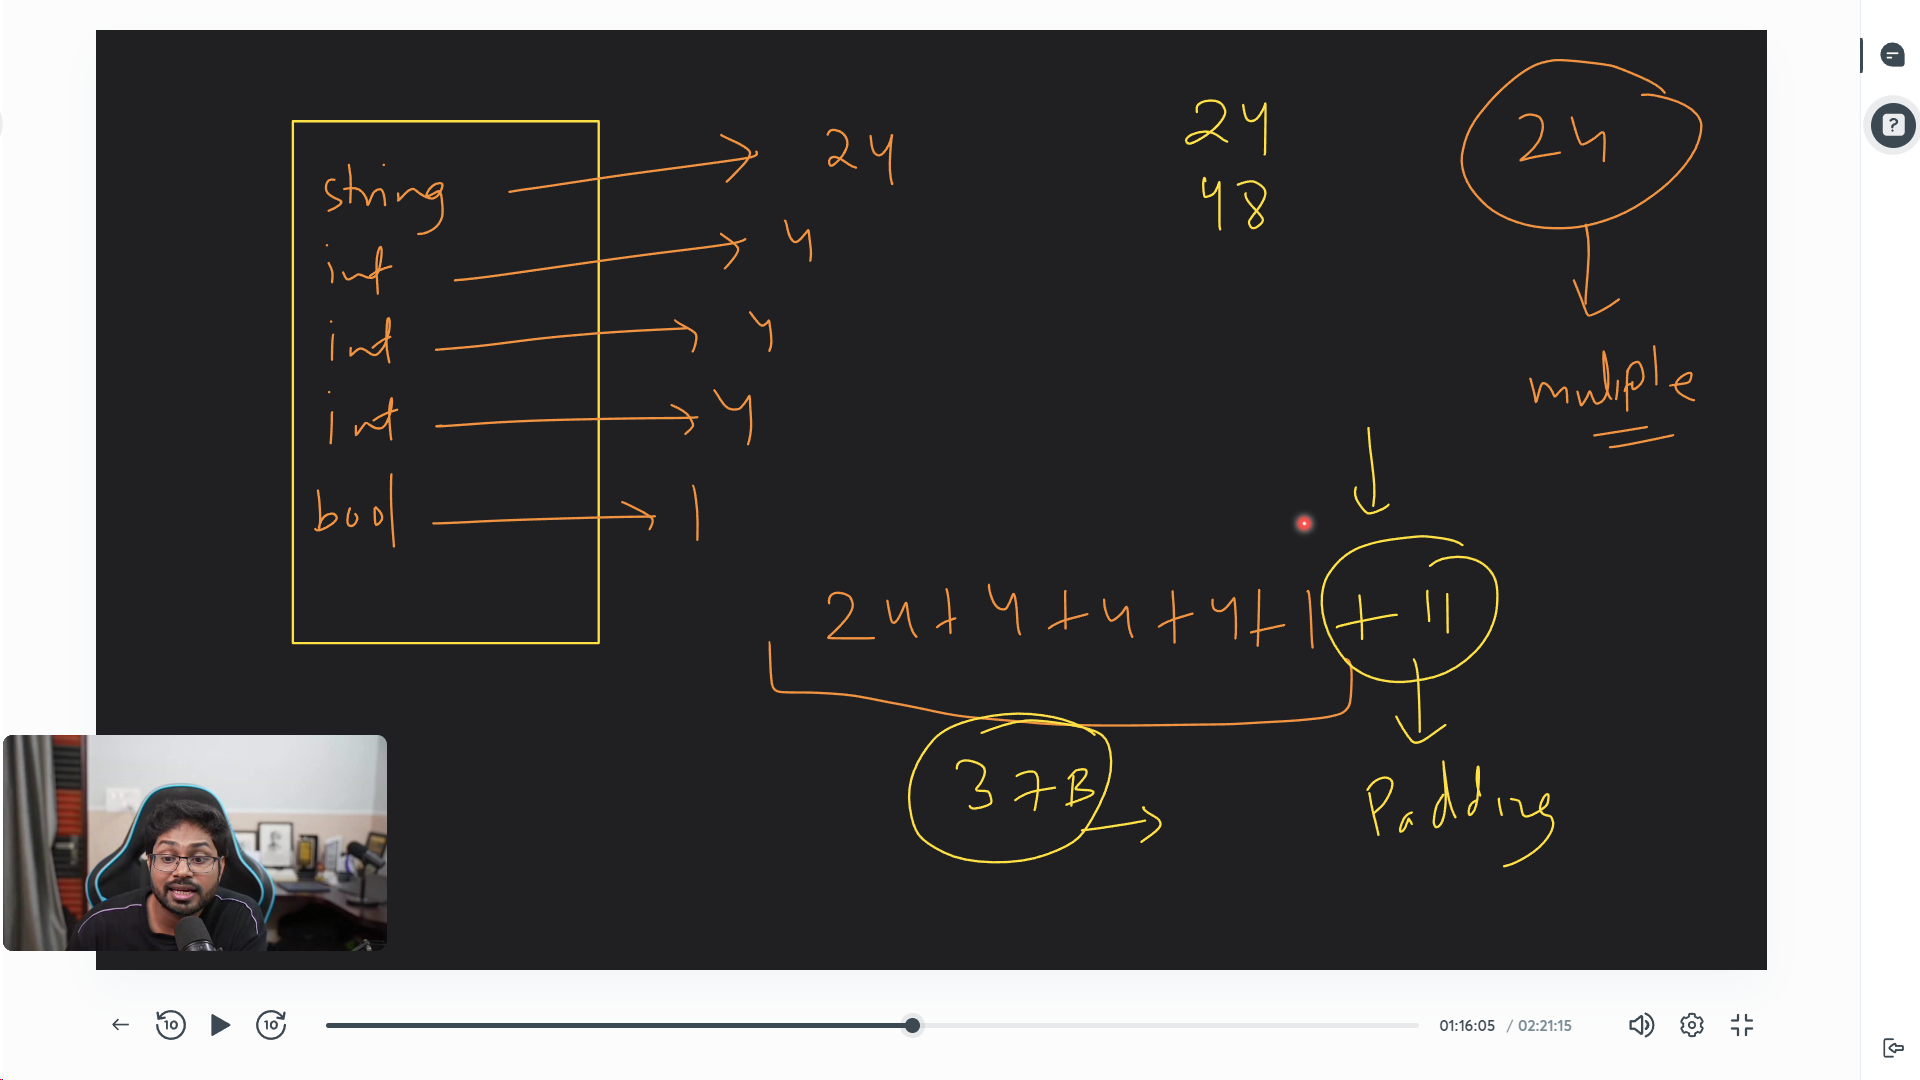 string → 24
int → 4
int → 4
int → 4
bool → 1
24
48
24
muliple
24+4+4+4+1+11
37B →
Padding
10
10
01:16:05 / 02:21:15